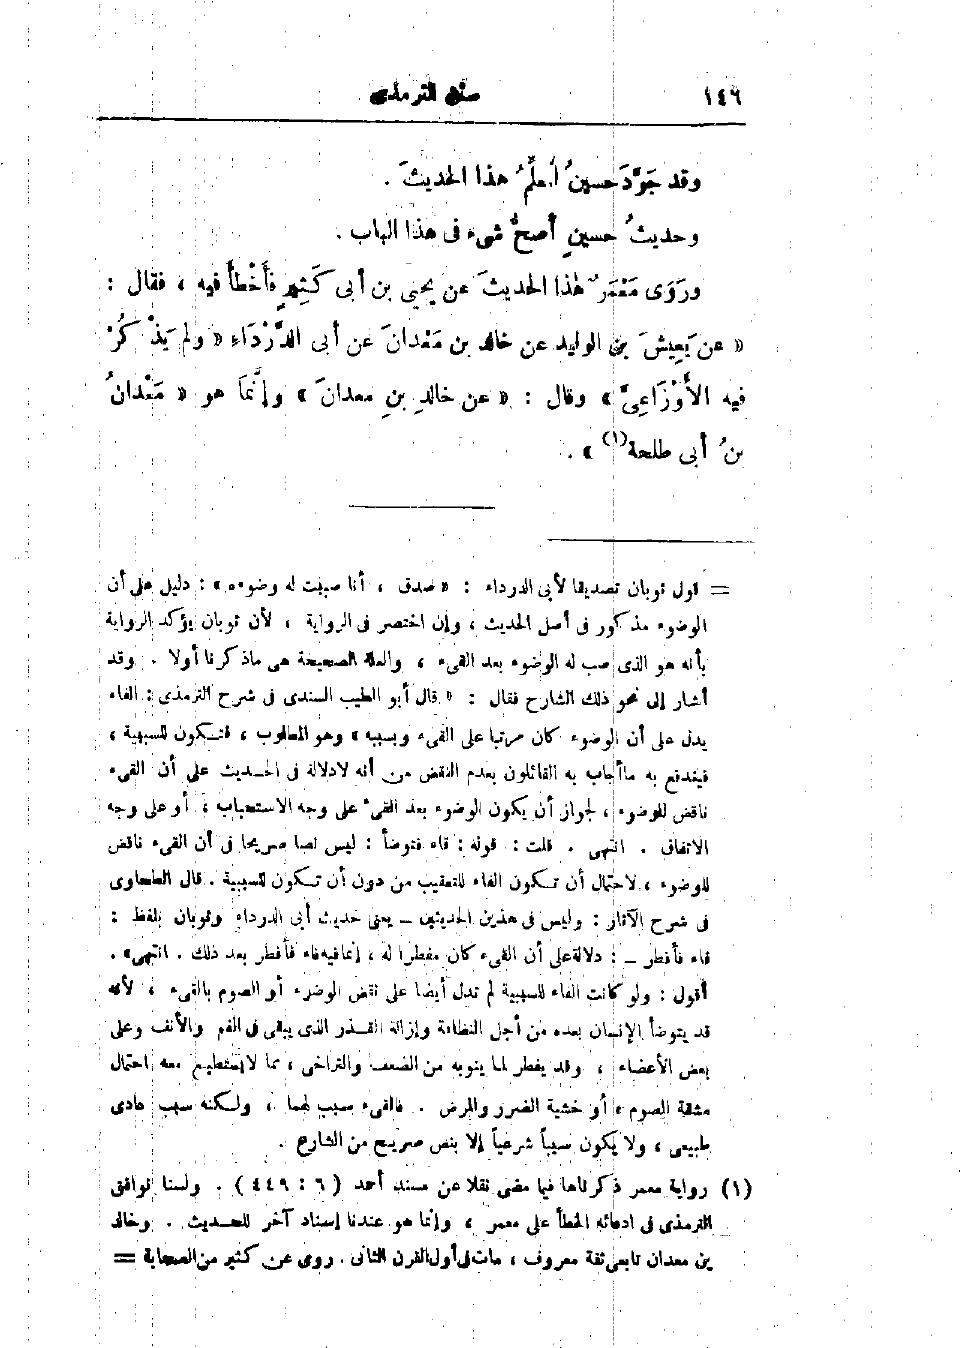 ١٤٦ سنن الترمذى
وقد جَوَّدَ حسينٌ المعلِّمُ هذا الحديثَ .
وحديثُ حسينٍ أصحُّ شىء فى هذا الباب .
ورَوَى مَعْمَرٌ هٰذا الحديثَ عن يحيى بن أبى كَثِيرٍ فأَخْطأَ فيه ، فقال :
« عن يَعِيشَ بن الوليد عن خالد بن مَعْدانَ عن أبى الدَّرْدَاءِ « ولم يَذْكُرْ
فيه الأَوْزَاعِىَّ » وقال : « عن خالدِ بنِ معدانَ » وإنَّمَا هو « مَعْدانُ
بنُ أبى طلحة (١) » .
= قول ثوبان تصديقا لأبى الدرداء : « صدق ، أنا صببت له وضوءه » : دليل على أن
الوضوء مذكور فى أصل الحديث ، وإن اختصر فى الرواية ، لأن ثوبان يؤكد الرواية
بأنه هو الذى صب له الوضوء بعد القىء ، والعلة الصحيحة هى ماذكرنا أولا . وقد
أشار إلى نحو ذلك الشارح فقال : « قال أبو الطيب السندى فى شرح الترمذى : الفاء
يدل على أن الوضوء كان مرتبا على القىء وبسببه » وهو المطلوب ، فتكون للسببية ،
فيندفع به ماأجاب به القائلون بعدم النقض من أنه لادلالة فى الحديث على أن القىء
ناقض للوضوء ، لجواز أن يكون الوضوء بعد القىء على وجه الاستحباب ، أو على وجه
الاتفاق . انتهى . قلت : قوله : قاء فتوضأ : ليس نصا صريحا فى أن القىء ناقض
للوضوء ، لاحتمال أن تكون الفاء للتعقيب من دون أن تكون للسببية . قال الطحاوى
فى شرح الآثار : وليس فى هذين الحديثين – يعنى حديث أبى الدرداء وثوبان بلفظ :
قاء فأفطر – : دلالة على أن القىء كان مفطرا له ، إنما فيه قاء فأفطر بعد ذلك . انتهى » .
أقول : ولو كانت الفاء للسببية لم تدل أيضا على نقض الوضوء أو الصوم بالقىء ، لأنه
قد يتوضأ الإنسان بعده من أجل النظافة وإزالة القذر الذى يبقى فى الفم والأنف وعلى
بعض الأعضاء ، وقد يفطر لما ينوبه من الضعف والتراخى ، مما لايستطيع معه احتمال
مشقة الصوم ، أو خشية الضرر والمرض . فالقىء سبب لهما ، ولكنه سبب عادى
طبيعى ، ولا يكون سبباً شرعياً إلا بنص صريح من الشارع .
(١) رواية معمر ذكرناها فيما مضى نقلا عن مسند أحمد ( ٦ : ٤٤٩ ) . ولسنا نوافق
الترمذى فى ادعائه الخطأ على معمر ، وإنما هو عندنا إسناد آخر للحديث . وخالد
بن معدان تابعى ثقة معروف ، مات فى أول القرن الثانى . روى عن كثير من الصحابة =